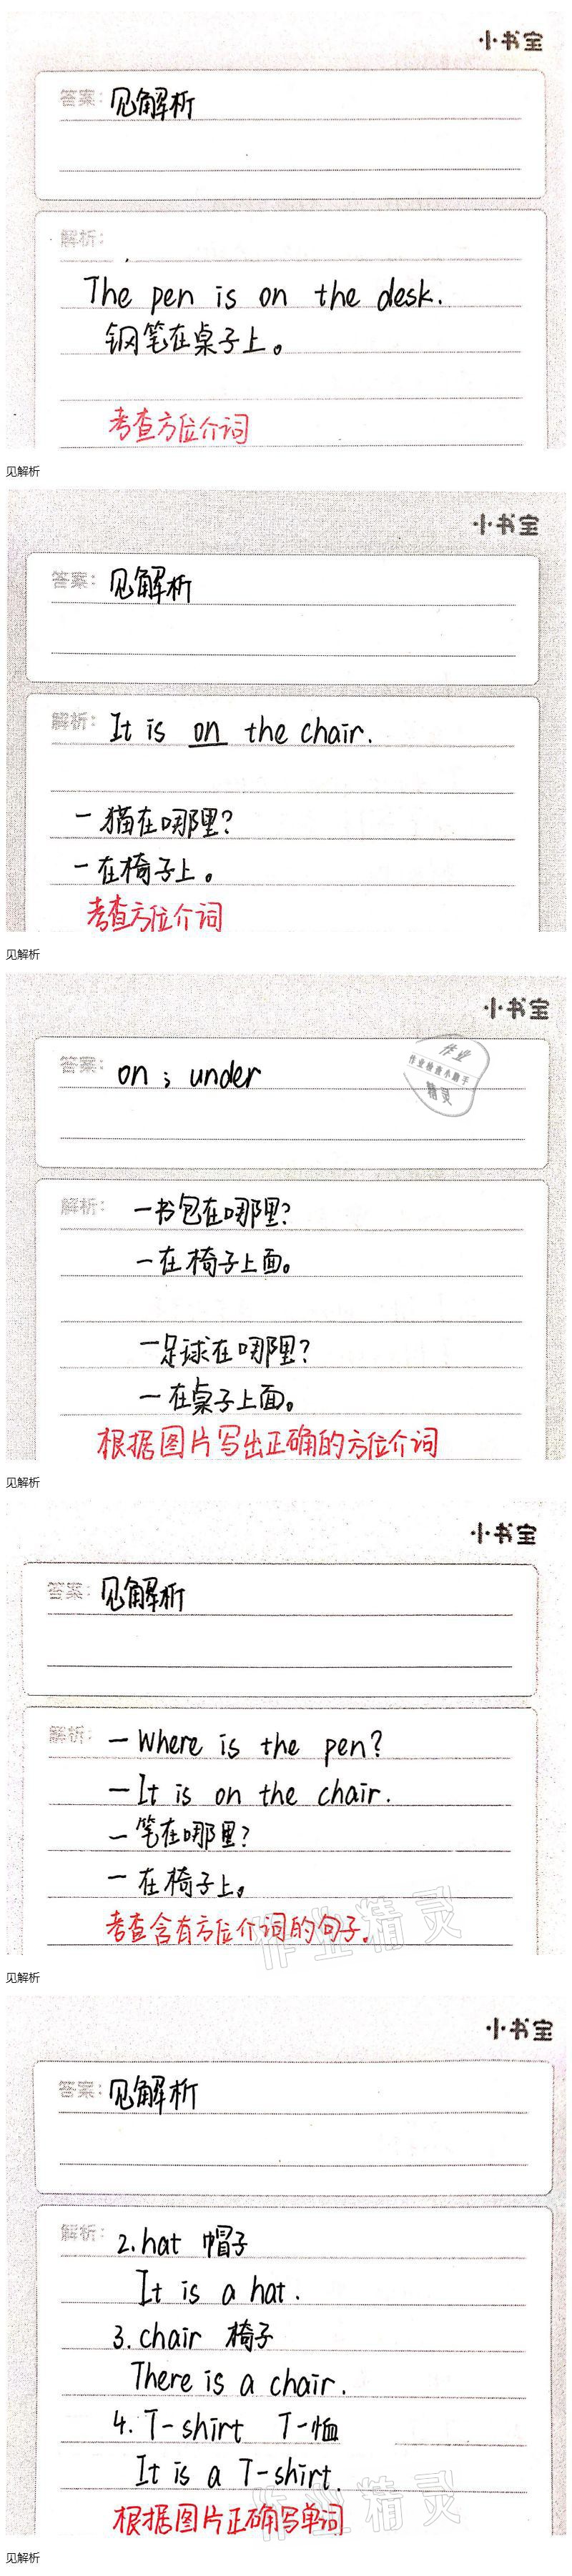 小书宝
答案: 见解析
解析:
The pen is on the desk.
钢笔在桌子上。
考查方位介词
见解析
小书宝
答案: 见解析
解析: It is on the chair.
一猫在哪里?
一在椅子上。
考查方位介词
见解析
小书宝
答案: on ; under
作业
作业检查小助手
精灵
解析: 一书包在哪里?
一在椅子上面。
一足球在哪里?
一在桌子上面。
根据图片写出正确的方位介词
见解析
小书宝
答案: 见解析
解析: —Where is the pen?
—It is on the chair.
一笔在哪里?
一在椅子上。
考查含有方位介词的句子.
作业精灵
见解析
小书宝
答案: 见解析
解析: 2. hat 帽子
It is a hat.
3. chair 椅子
There is a chair.
4. T-shirt T-恤
It is a T-shirt.
根据图片正确写单词
作业精灵
见解析